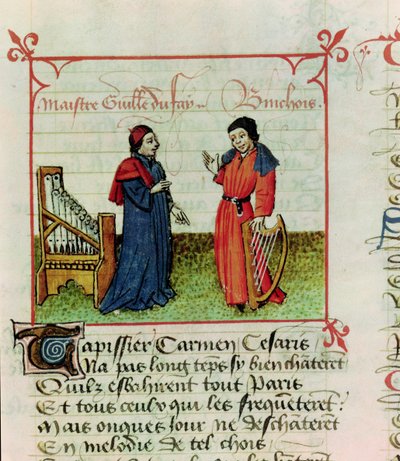 Maistre Guille du fay Binchois.
Tapissier Carmen Cesaris
Na pas long teps sy bien chãteret
Quilz esbahirent tout Paris
Et tous ceulx qui les frequẽteret:
Mais onques Jour ne deschãteret
En melodie de tel chois